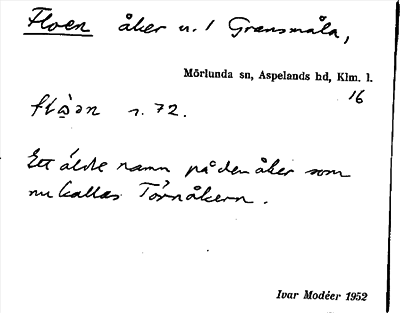 Floen åker u. 1 Gränsmåla,
Mörlunda sn, Aspelands hd, Klm. l.
16
r. 72.
Ett äldre namn på den åker som
nu kallas Törnåkern.
Ivar Modéer 1952